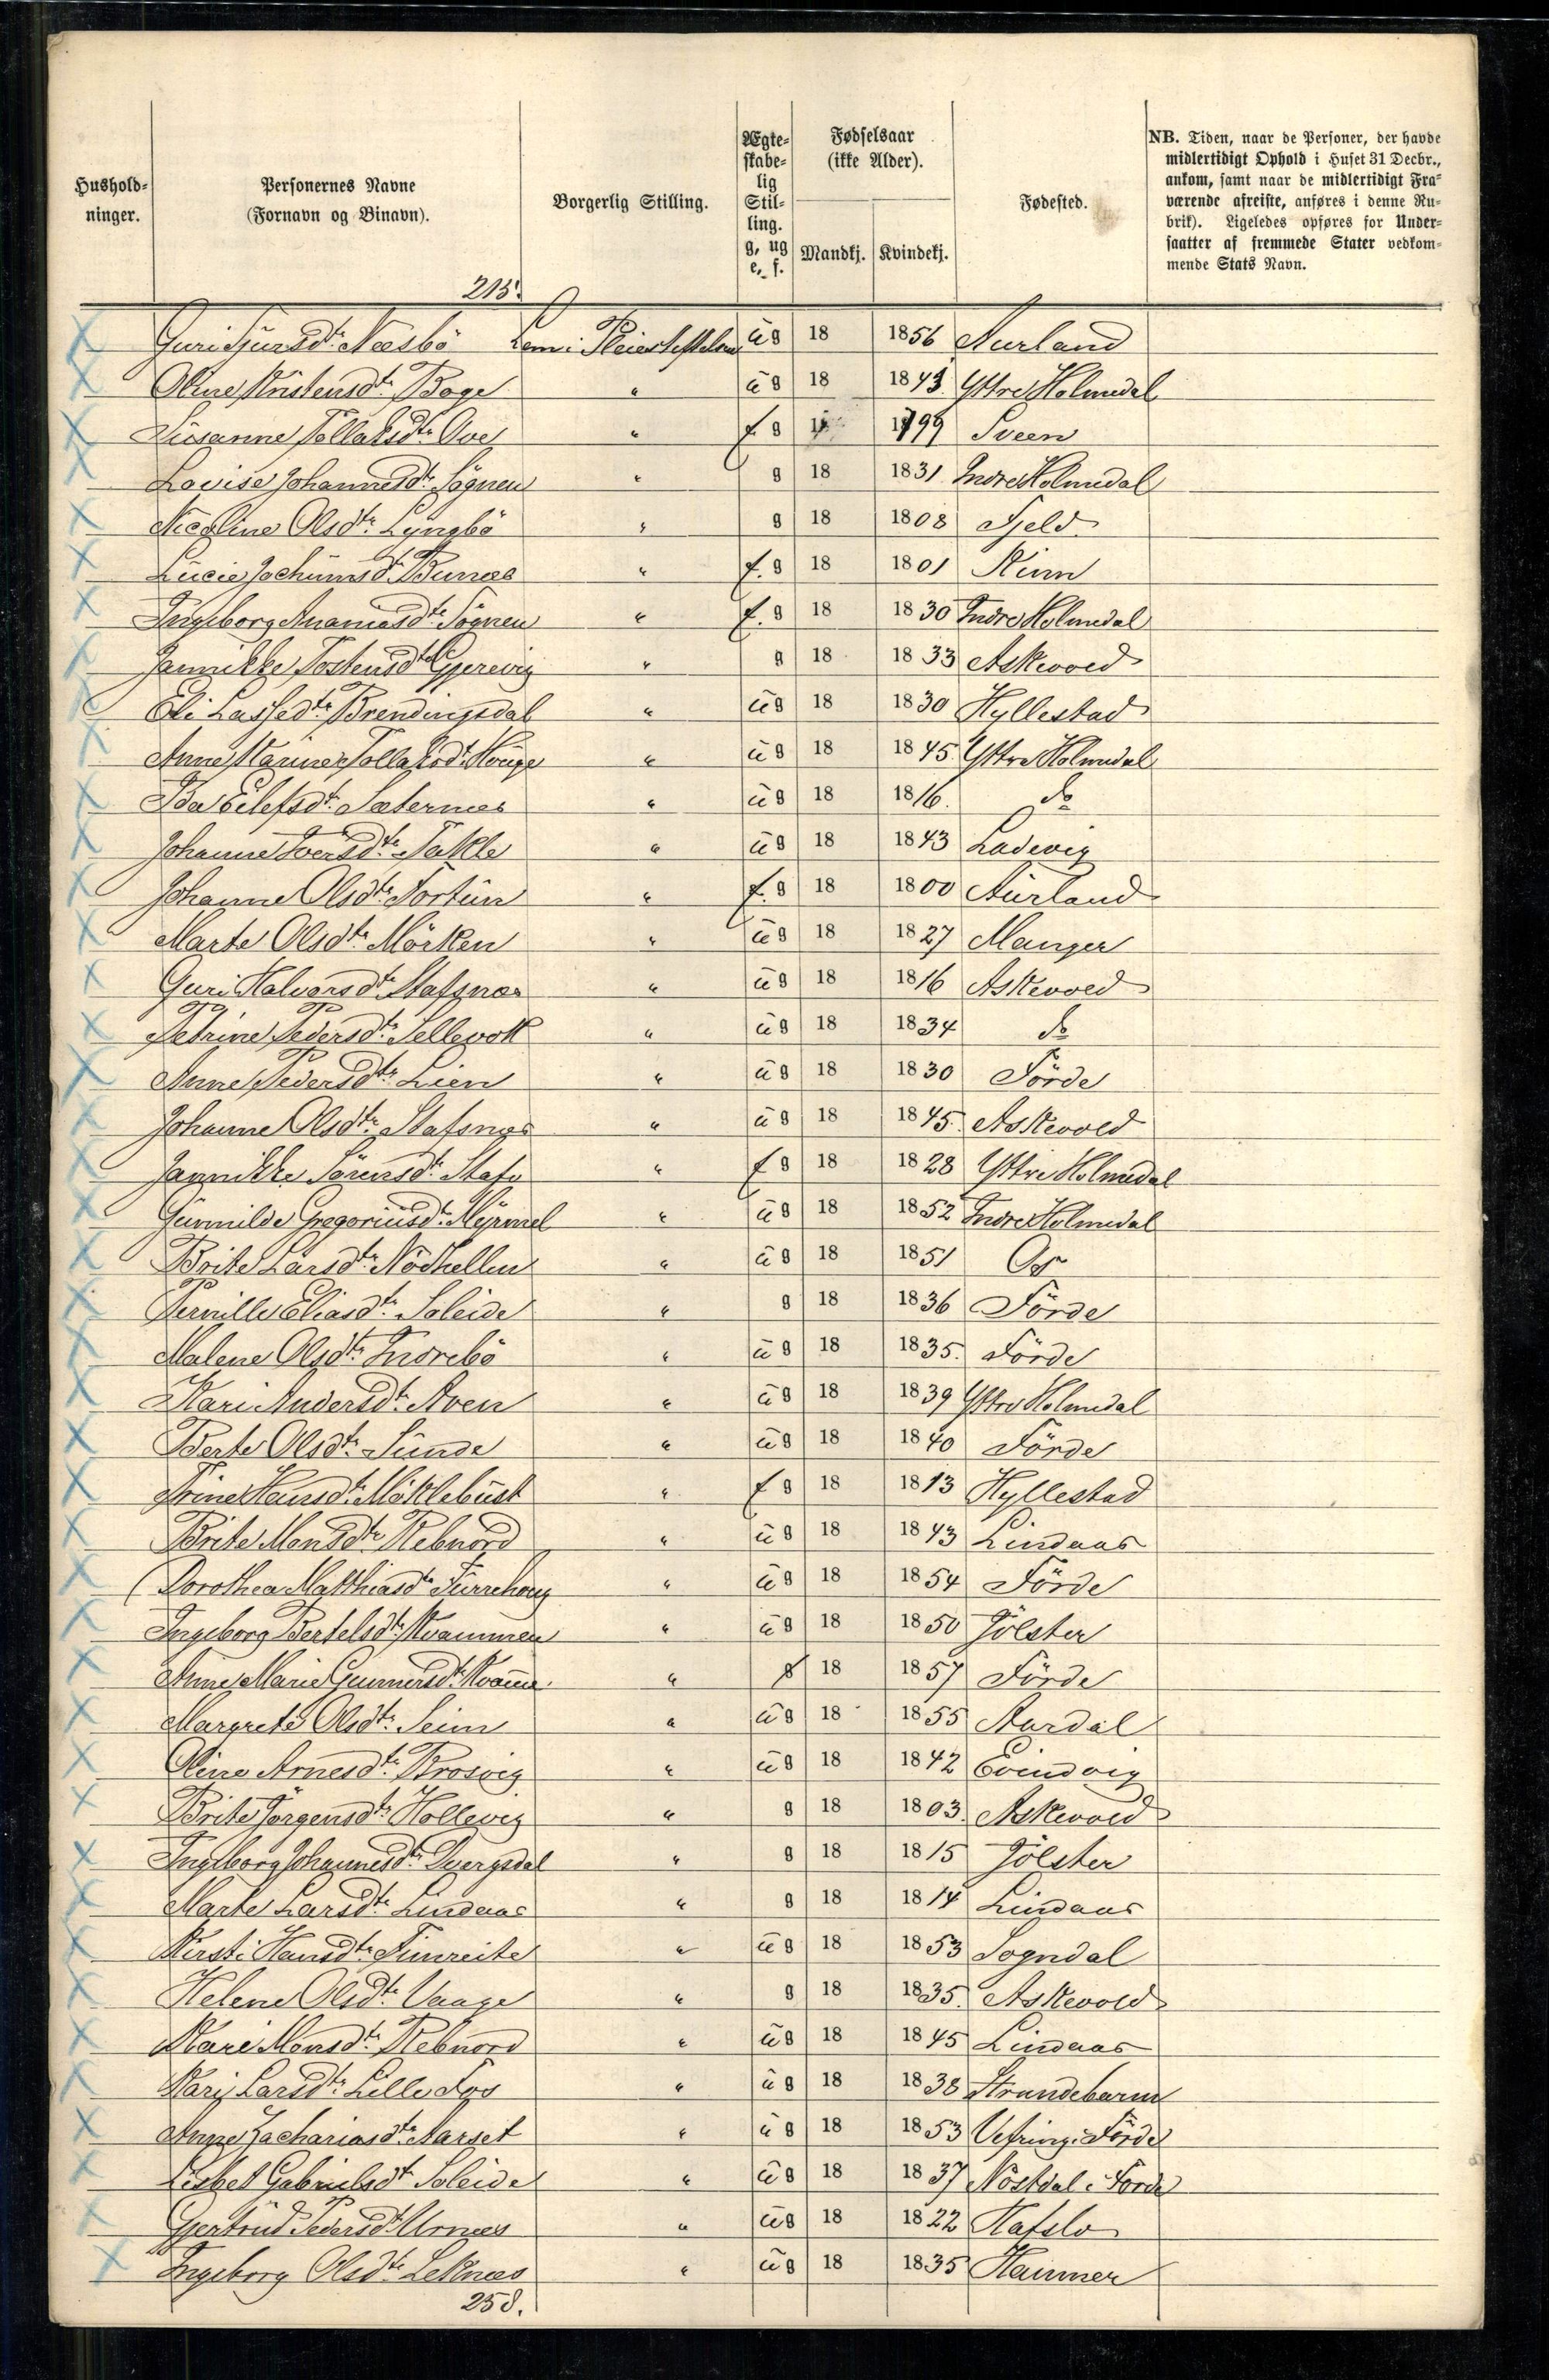 Hushold-
ninger.
Personernes Navne
(Fornavn og Binavn).
Borgerlig Stilling.
Ægte-
skabe-
lig
Stil-
ling.
g, ug
e, f.
Fødselsaar
(ikke Alder).
Mandkj. Kvindekj.
Fødested.
NB. Tiden, naar de Personer, der havde
midlertidigt Ophold i Huset 31 Decbr.,
ankom, samt naar de midlertidigt Fra-
værende afreiste, anføres i denne Ru-
brik). Ligeledes opføres for Under-
saatter af fremmede Stater vedkom-
mende Stats Navn.
215.
Guri Sjursdtr. Næsbö Lem i Pleiestiftelsen ug 18 1856 Aurland
Oline Kristensdtr. Boge " ug 18 1843 Yttre Holmedal
Susanne Tollaksdtr. Ove " f g 1799 Sveen
Lovise Johannesdtr. Sögnen " g 18 1831 Indre Holmedal
Nicoline Olsdtr. Lyngbö " g 18 1808 Fjeld
Lucie Jochumsdtr. " f. g 18 1801 Kinn
Ingeborg Ananiasdtr. Sögnen " f. g 18 1830 Indre Holmedal
Jannikke Tostensdtr. Gjerevig " g 18 1833 Askevold
Eli Lassedtr. Brendingsdal " ug 18 1830 Hyllestad
Anne Marine Tollaksdtr. Houge " ug 18 1845 Yttre Holmedal
Boa Eilefsdtr. Sæternæs " ug 18 1816 do
Johanne Iversdtr. Takle " ug 18 1843 Ladevig
Johanne Olsdtr. Fortun " f. g 18 1800 Aurland
Marte Olsdtr. Mörken " ug 18 1827 Manger
Guri Halvorsdtr. Stafsnæs " ug 18 1816 Askevold
Petrine Pedersdtr. Sellevold " ug 18 1834 do
Anne Pedersdtr. Lien " ug 18 1830 Förde
Johanne Olsdtr. Stafsnæs " ug 18 1845 Askevold
Jannikke Sörensdtr. " f g 18 1828 Yttre Holmedal
Gunnilde Gregoriusdtr. Myrmel " ug 18 1852 Indre Holmedal
Brite Larsdtr. Nödhellen " ug 18 1851 Os
Pernille Eliasdtr. Soleide " g 18 1836 Förde
Malene Olsdtr. Indrebö " ug 18 1835. Förde
Kari Andersdtr. Aven " ug 18 1839 Yttre Holmedal
Berte Olsdtr. Sunde " ug 18 1840 Förde
Trine Hansdtr. Möklebust " f g 18 1813 Hyllestad
Brite Monsdtr. Rebnord " ug 18 1843 Lindaas
Dorothea Matthiasdtr. Furrehoug " ug 18 1854 Förde
Ingeborg Bertelsdtr. Kvammen " ug 18 1850 Jölster
Anne Marie Gunnersdtr. Kvamme " g 18 1857 Förde
Margrete Olsdtr. Seim " ug 18 1855 Aardal
Oline Arnesdtr. Brosvig " ug 18 1842 Evindvig
Brite Jörgensdtr. Hollevig " g 18 1803. Askevold
Ingeborg Johannesdtr. Dvergsdal " g 18 1815 Jölster
Marte Larsdtr. Lindaas " g 18 1814 Lindaas
Kirsti Hansdtr. Fimreite " ug 18 1853 Sogndal
Helene Olsdtr. Vaage " g 18 1835. Askevold
Kari Monsdtr. Rebnord " ug 18 1845 Lindaas
Kari Larsdtr. Lille Fos " ug 18 1838 Strandebarm
Anne Zachariasdtr. Aarset " ug 18 1853 Vefring i Förde
Lisbet Gabrielsdtr. Soleide " ug 18 1837 Nöstdal i Förde
Gjertrud Pedersdtr. Urnæs " ug 18 1822 Hafslo
Ingeborg Olsdtr. Leknæs " ug 18 1835 Hammer
258.